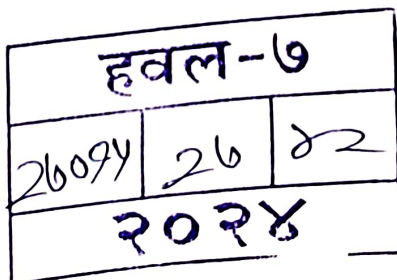 हवल-७
२७०१५ २७
२०२४